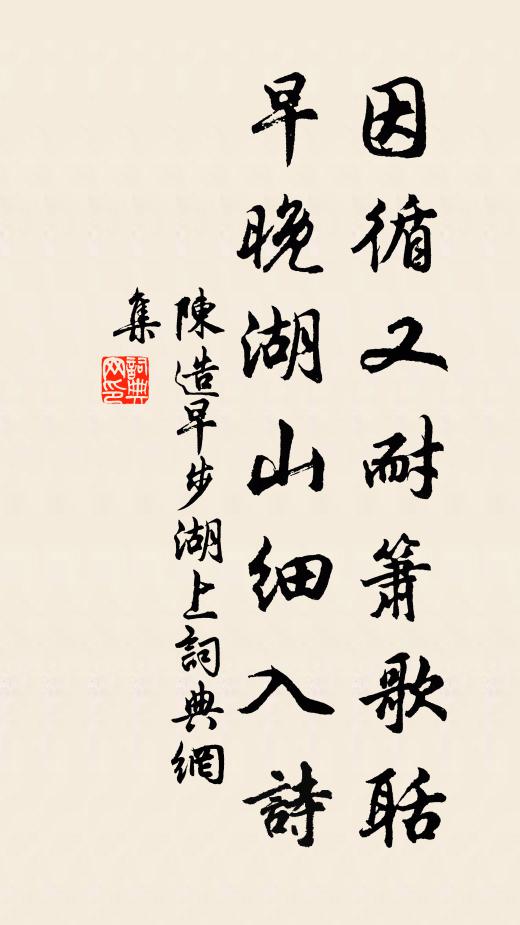 因循又耐箫歌聒
早晚湖山细入詩
陳造早步湖上詞典網
集
詞典
网印